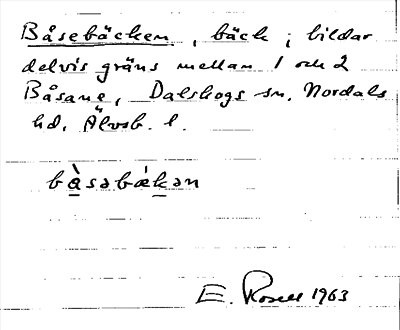 Båsebäcken, bäck; bildar
delvis gräns mellan 1 och 2
Båsane, Dalskogs sn. Nordals
hd. Älvsb. l.
bå̀səbǽkən
E. Rosell 1963